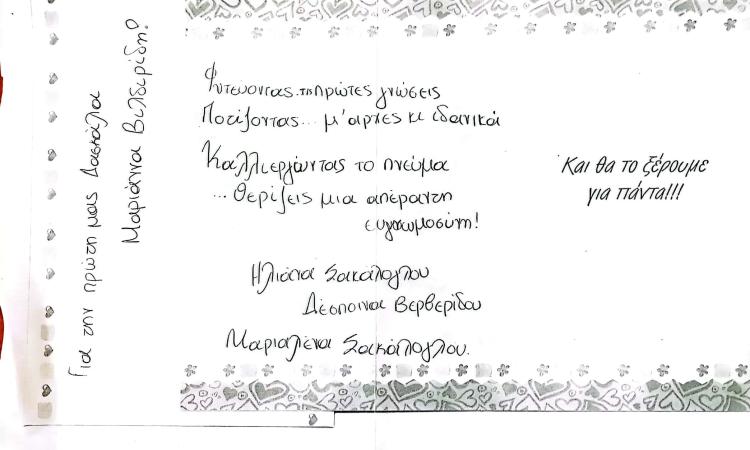 Για την πρώτη μας Δασκάλα
Μαριάννα Βελδερίδη?
Φυτεύοντας..τη πρώτες γνώσεις
Ποτίζοντας... μ' αρχες κι ιδανικά
Καλλιεργώντας το πνεύμα
...Θερίζεις μια απέραντη
ευγνωμοσύνη!
Ηλιάνα Σακάλογλου
Δέσποινα Βερβερίδου
Μαριαλένα Σακάλογλου.
Και θα το ξέρουμε
για πάντα!!!